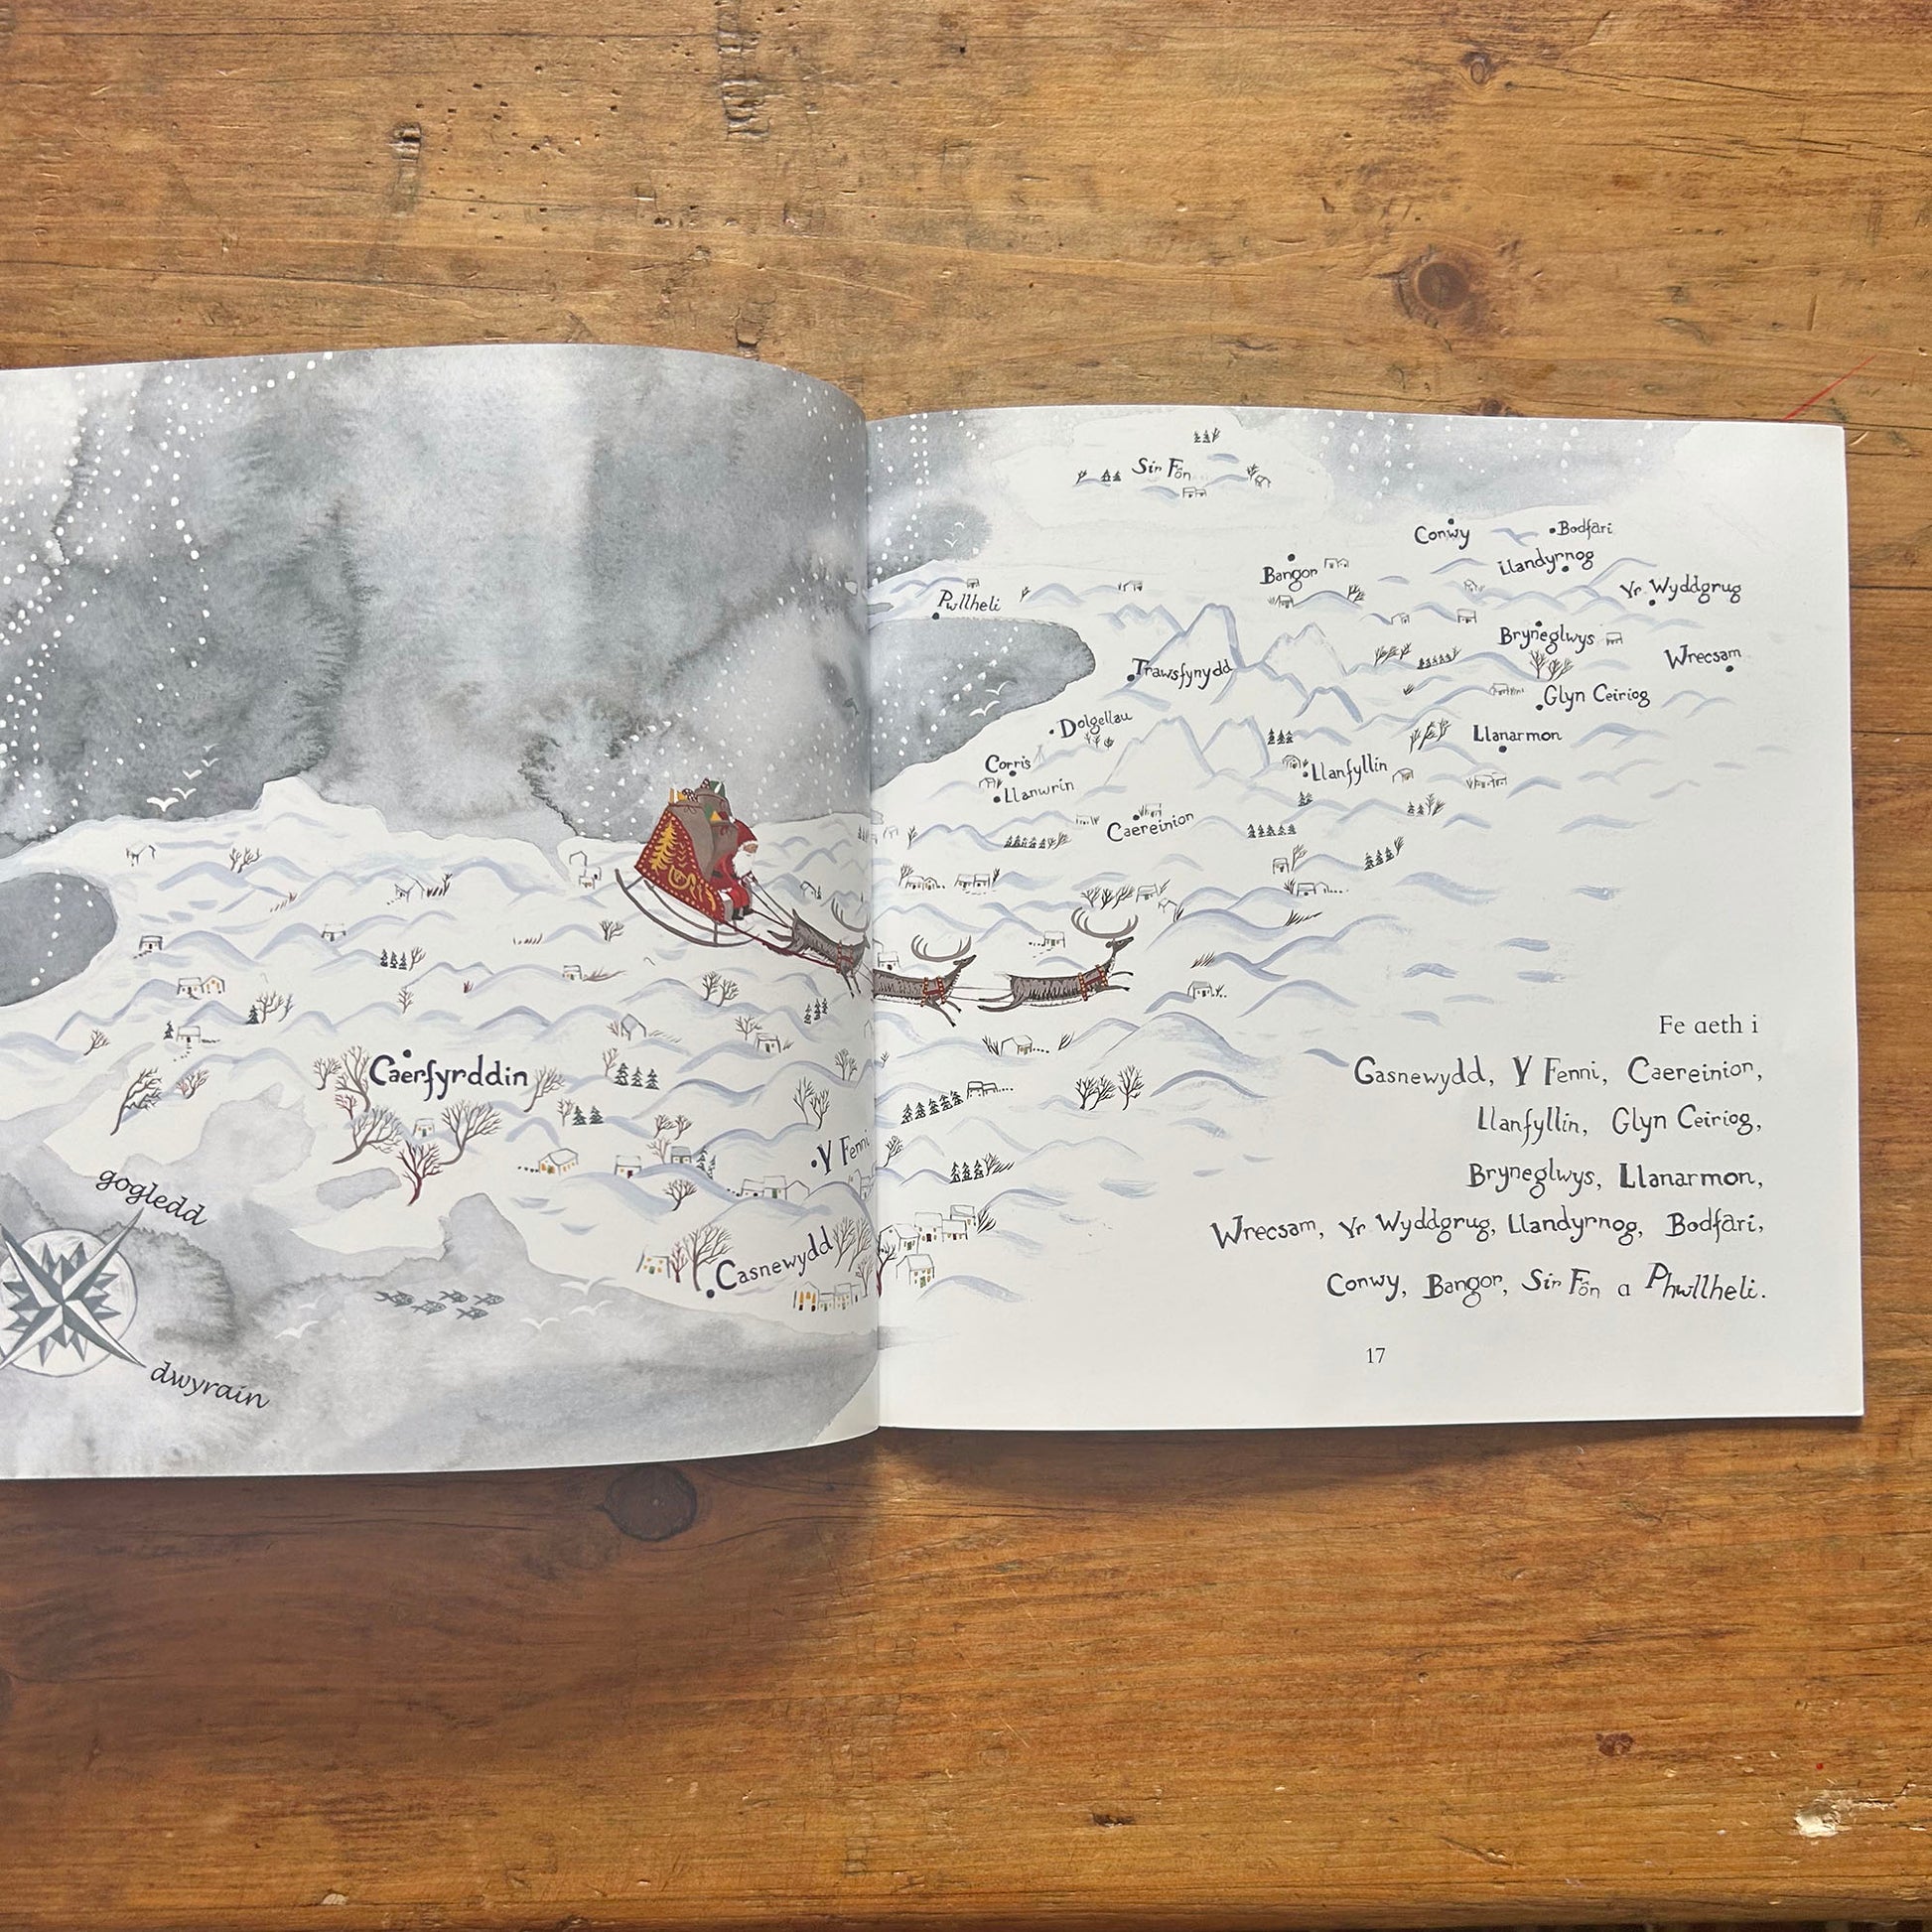 Caerfyrddin
Y Fenni
gogledd
Casnewydd
dwyrain
Sir Fôn
Conwy
Bodfari
Llandyrnog
Bangor
Yr Wyddgrug
Pwllheli
Bryneglwys
Wrecsam
Trawsfynydd
Glyn Ceiriog
Dolgellau
Llanarmon
Corris
Llanfyllin
Llanwrin
Caereinion
Fe aeth i
Gasnewydd, Y Fenni, Caereinion,
Llanfyllin, Glyn Ceiriog,
Bryneglwys, Llanarmon,
Wrecsam, Yr Wyddgrug, Llandyrnog, Bodfari,
Conwy, Bangor, Sir Fôn a Phwllheli.
17